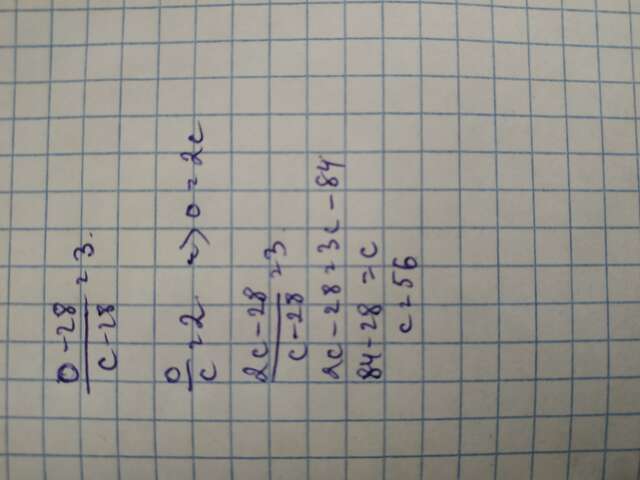 0-28/c-28 = 3.
0/c = 2 => 0 = 2c
2c-28/c-28 = 3.
2c-28 = 3c-84
84-28 = c
c = 56